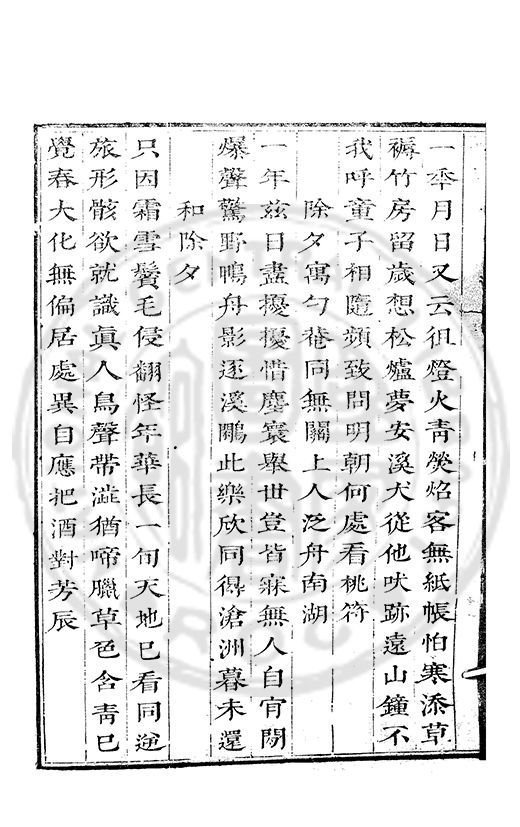 一秊月日又云徂燈火青熒焰客無紙帳怕寒添草
褥竹房留歲想松爐夢安溪犬從他吠跡遠山鐘不
我呼童子相隨頻致問明朝何處看桃符
除夕寓勺菴同無關上人泛舟南湖
一年兹日盡擾擾惜塵寰舉世豈皆寐無人自肎閒
爆聲驚野鴨舟影逐溪鷳此樂欣同得滄洲暮未還
和除夕
只因霜雪鬢毛侵翻怪年華長一旬天地已看同逆
旅形骸欲就識眞人鳥聲帶澁猶啼臘草色含靑已
覺春大化無偏居處異自應把酒對芳辰